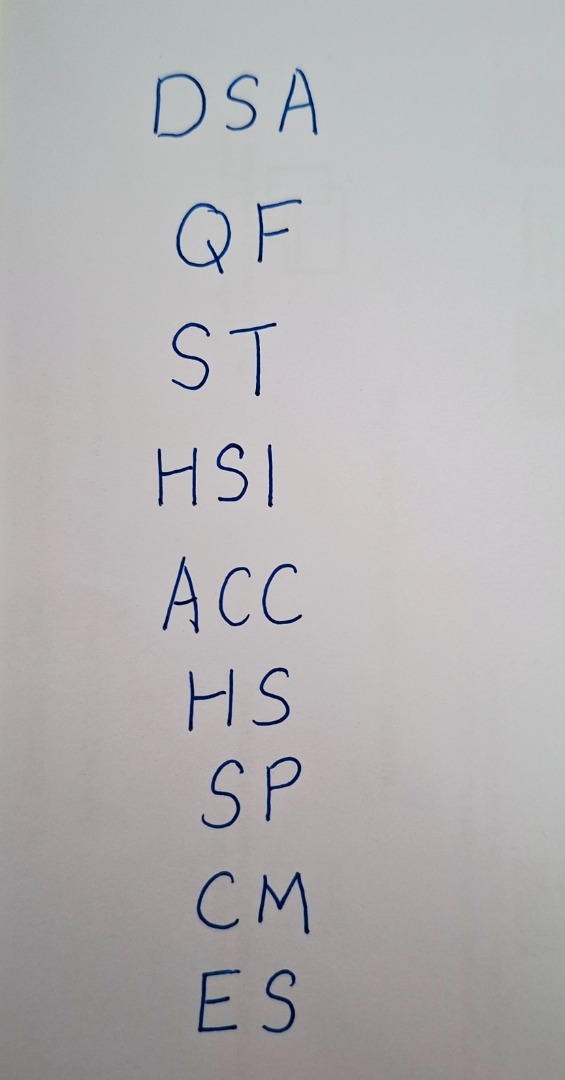 DSA
QF
ST
HSI
ACC
HS
SP
CM
ES